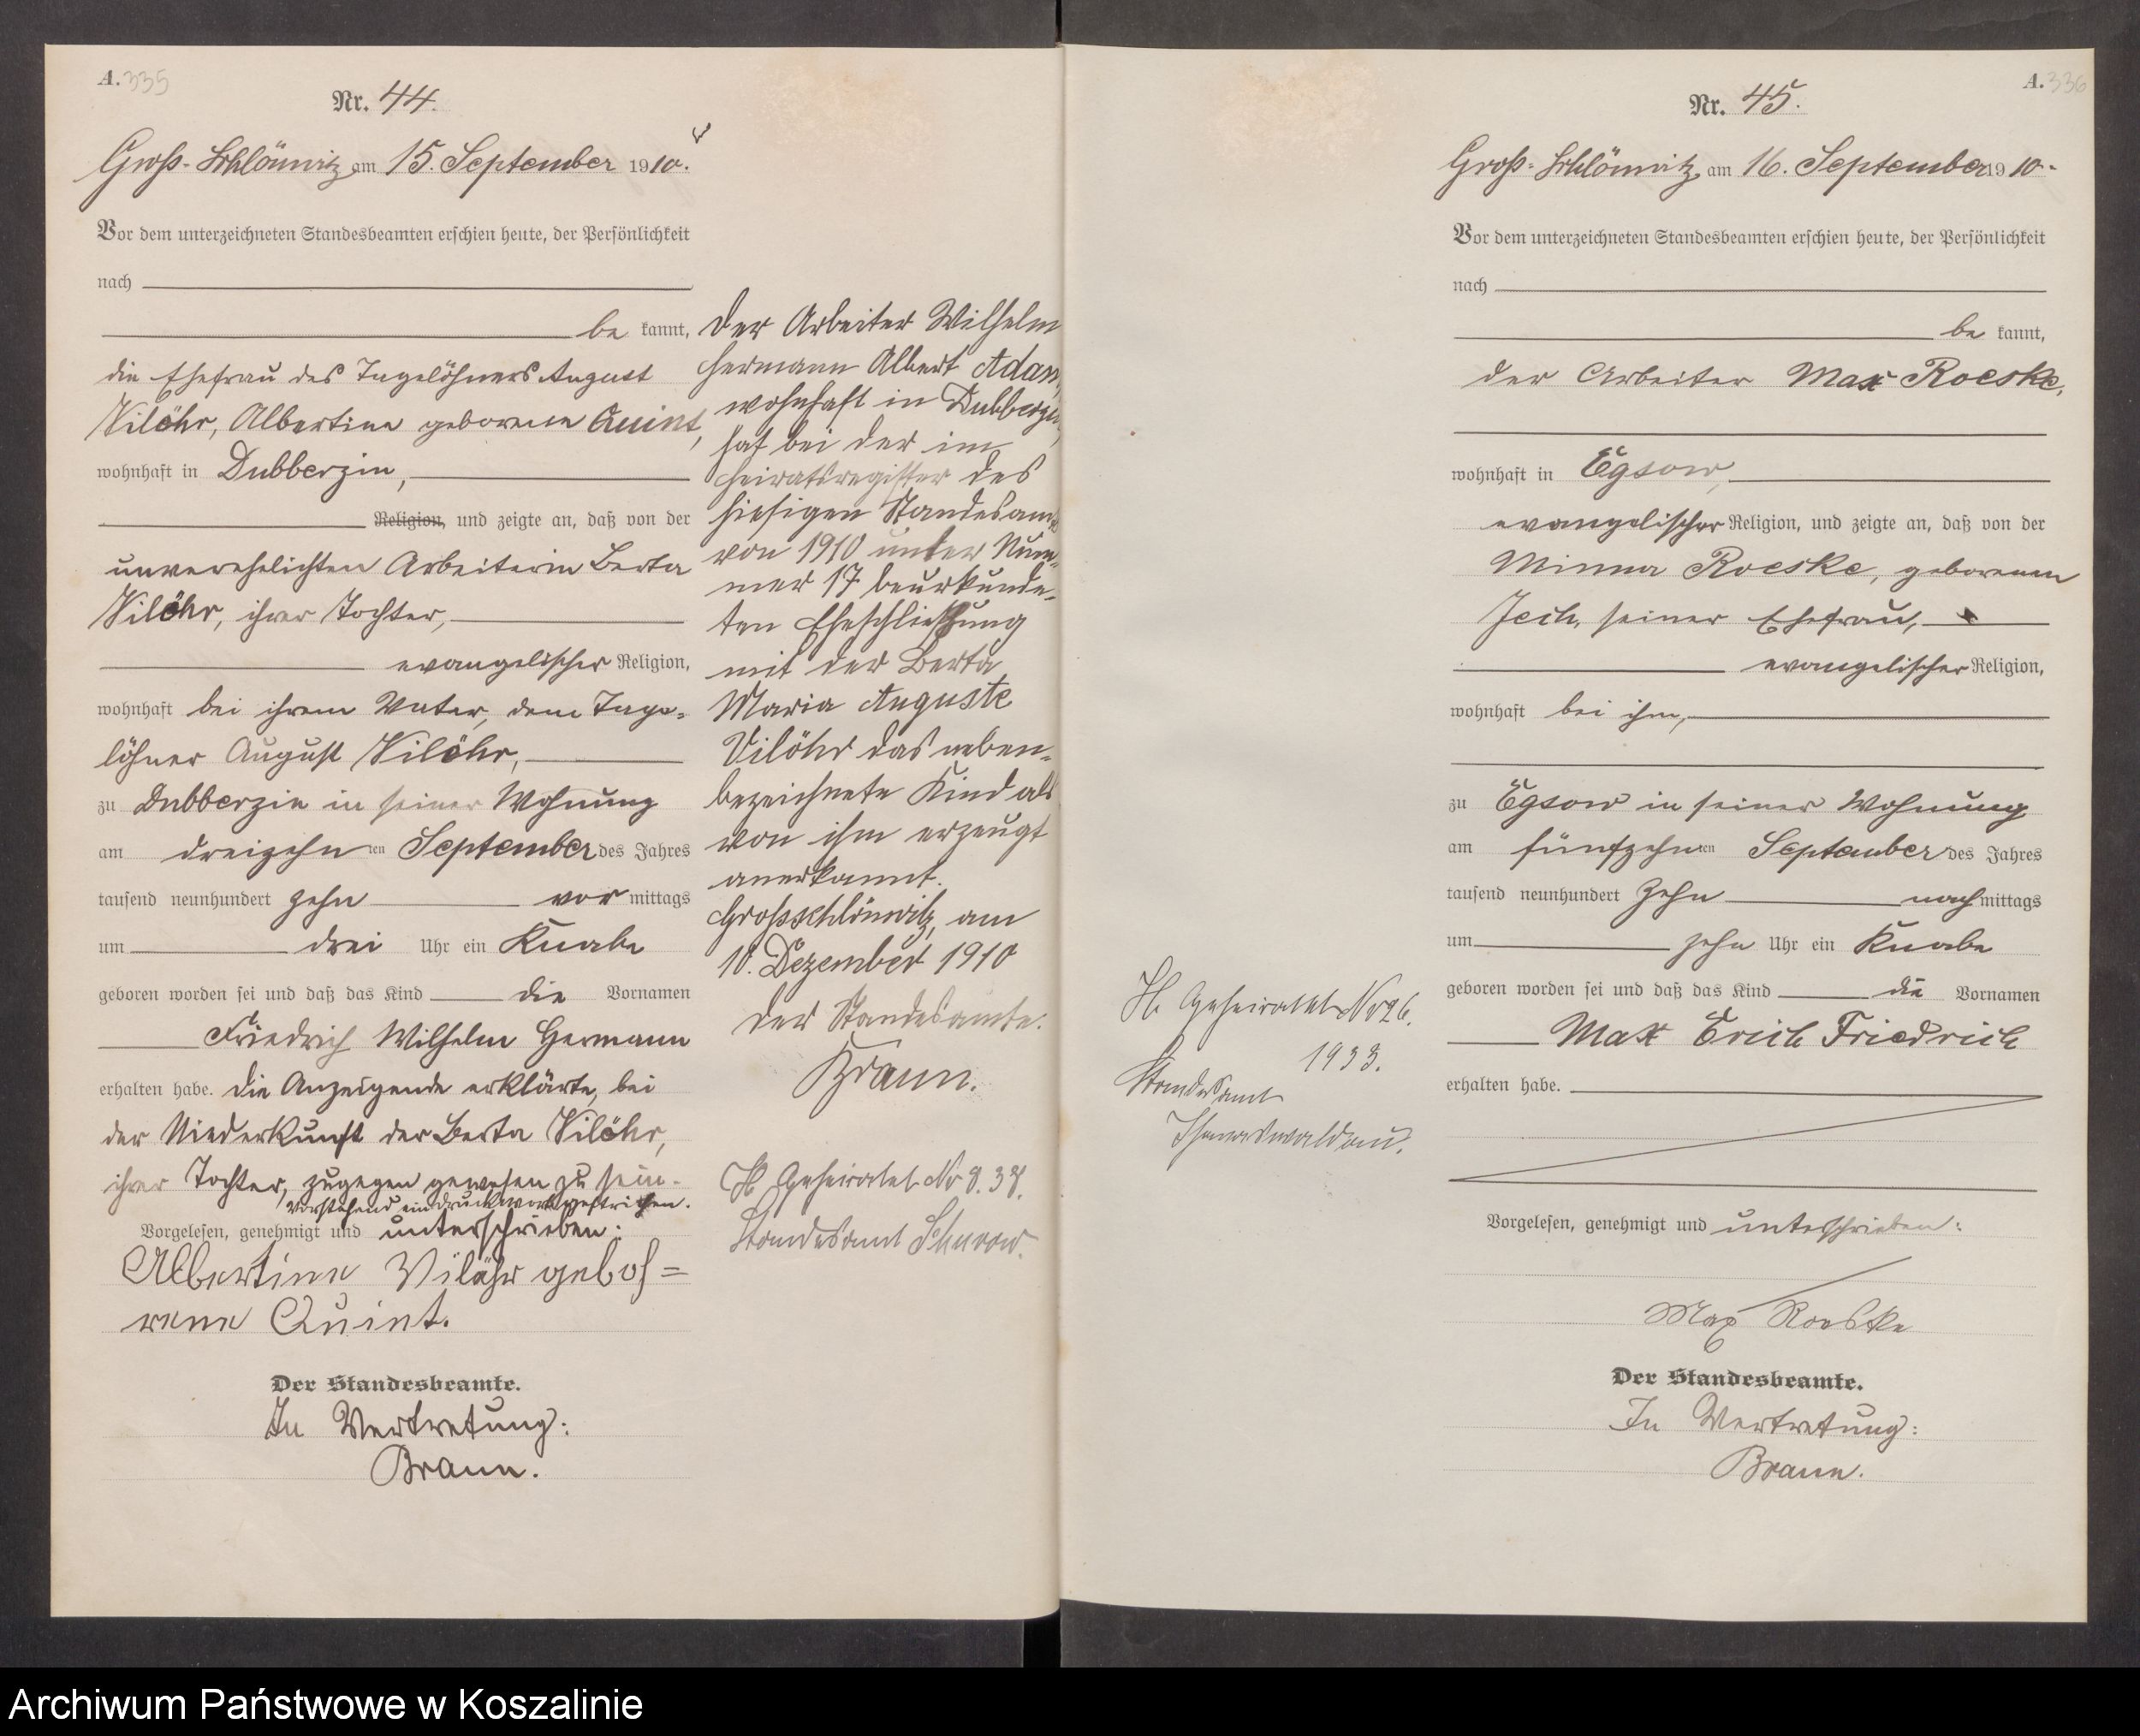 A. 335
Nr. 44.
Groß-Schlönwitz, am 15. September 1910.
Vor dem unterzeichneten Standesbeamten erschien heute, der Persönlichkeit
nach
be kannt,
die Ehefrau des Tagelöhners August
Vilöhr, Albertine geborene Quint,
wohnhaft in Dubberzin,
Religion, und zeigte an, daß von der
unverehelichten Arbeiterin Berta
Vilöhr, ihrer Tochter,
evangelischer Religion,
wohnhaft bei ihrem Vater, dem Tage-
löhner August Vilöhr,
zu Dubberzin in seiner Wohnung
am dreizehn ten September des Jahres
tausend neunhundert zehn vor mittags
um drei Uhr ein Knabe
geboren worden sei und daß das Kind die Vornamen
Friedrich Wilhelm Hermann
erhalten habe. Die Anzeigende erklärte, bei
der Niederkunft der Berta Vilöhr,
ihrer Tochter, zugegen gewesen zu sein.
Vorstehend ein Druckwort gestrichen.
Vorgelesen, genehmigt und unterschrieben:
Albertine Vilöhr geboh=
rene Quint.
Der Standesbeamte.
In Vertretung:
Braun.
Der Arbeiter Wilhelm
Hermann Albert Adam,
wohnhaft in Dubberzin,
hat bei der im
Heiratsregister des
hiesigen Standesamts
von 1910 unter Num-
mer 17 beurkunde-
ten Eheschließung
mit der Berta
Maria Auguste
Vilöhr das neben-
bezeichnete Kind als
von ihm erzeugt
anerkannt.
Großschlönwitz, am
10. Dezember 1910
Der Standesbeamte.
Braun.
H. Geheiratet Nr 8. 38.
Standesamt Schurow.
A. 336
Nr. 45.
Groß-Schlönwitz, am 16. September 1910.
Vor dem unterzeichneten Standesbeamten erschien heute, der Persönlichkeit
nach
be kannt,
der Arbeiter Max Roeske,
wohnhaft in Egsow,
evangelischer Religion, und zeigte an, daß von der
Minna Roeske, geborenen
Jech, seiner Ehefrau,
evangelischer Religion,
wohnhaft bei ihm,
zu Egsow in seiner Wohnung
am fünfzehn ten September des Jahres
tausend neunhundert zehn nach mittags
um zehn Uhr ein Knabe
geboren worden sei und daß das Kind die Vornamen
Max Erich Friedrich
erhalten habe.
Vorgelesen, genehmigt und unterschrieben:
Max Roeske
Der Standesbeamte.
In Vertretung:
Braun.
H. Geheiratet Nr 26.
1933.
Standesamt
Archiwum Państwowe w Koszalinie